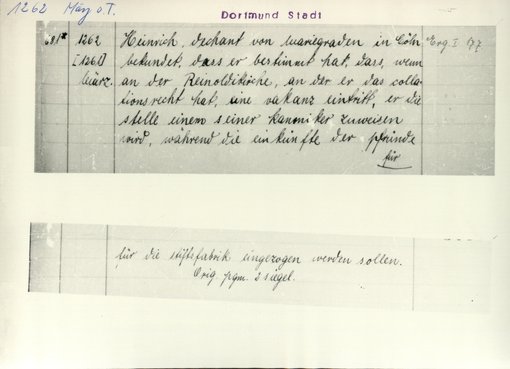 1262 März o.T.
Dortmund Stadt
1262
Heinrich, dechant von Mariegraden in Cöln
Erg. I 177
bekundet, dass er bestimmt hat, dass, wenn
März.
an der Reinoldikirche, an der er das colla-
tionsrecht hat, eine vakanz eintritt, er die
stelle einem seiner kanoniker zuweisen
wird, während die einkünfte der pfründe
für
für die stiftsfabrik eingezogen werden sollen.
Orig. pgm. 2 siegel.